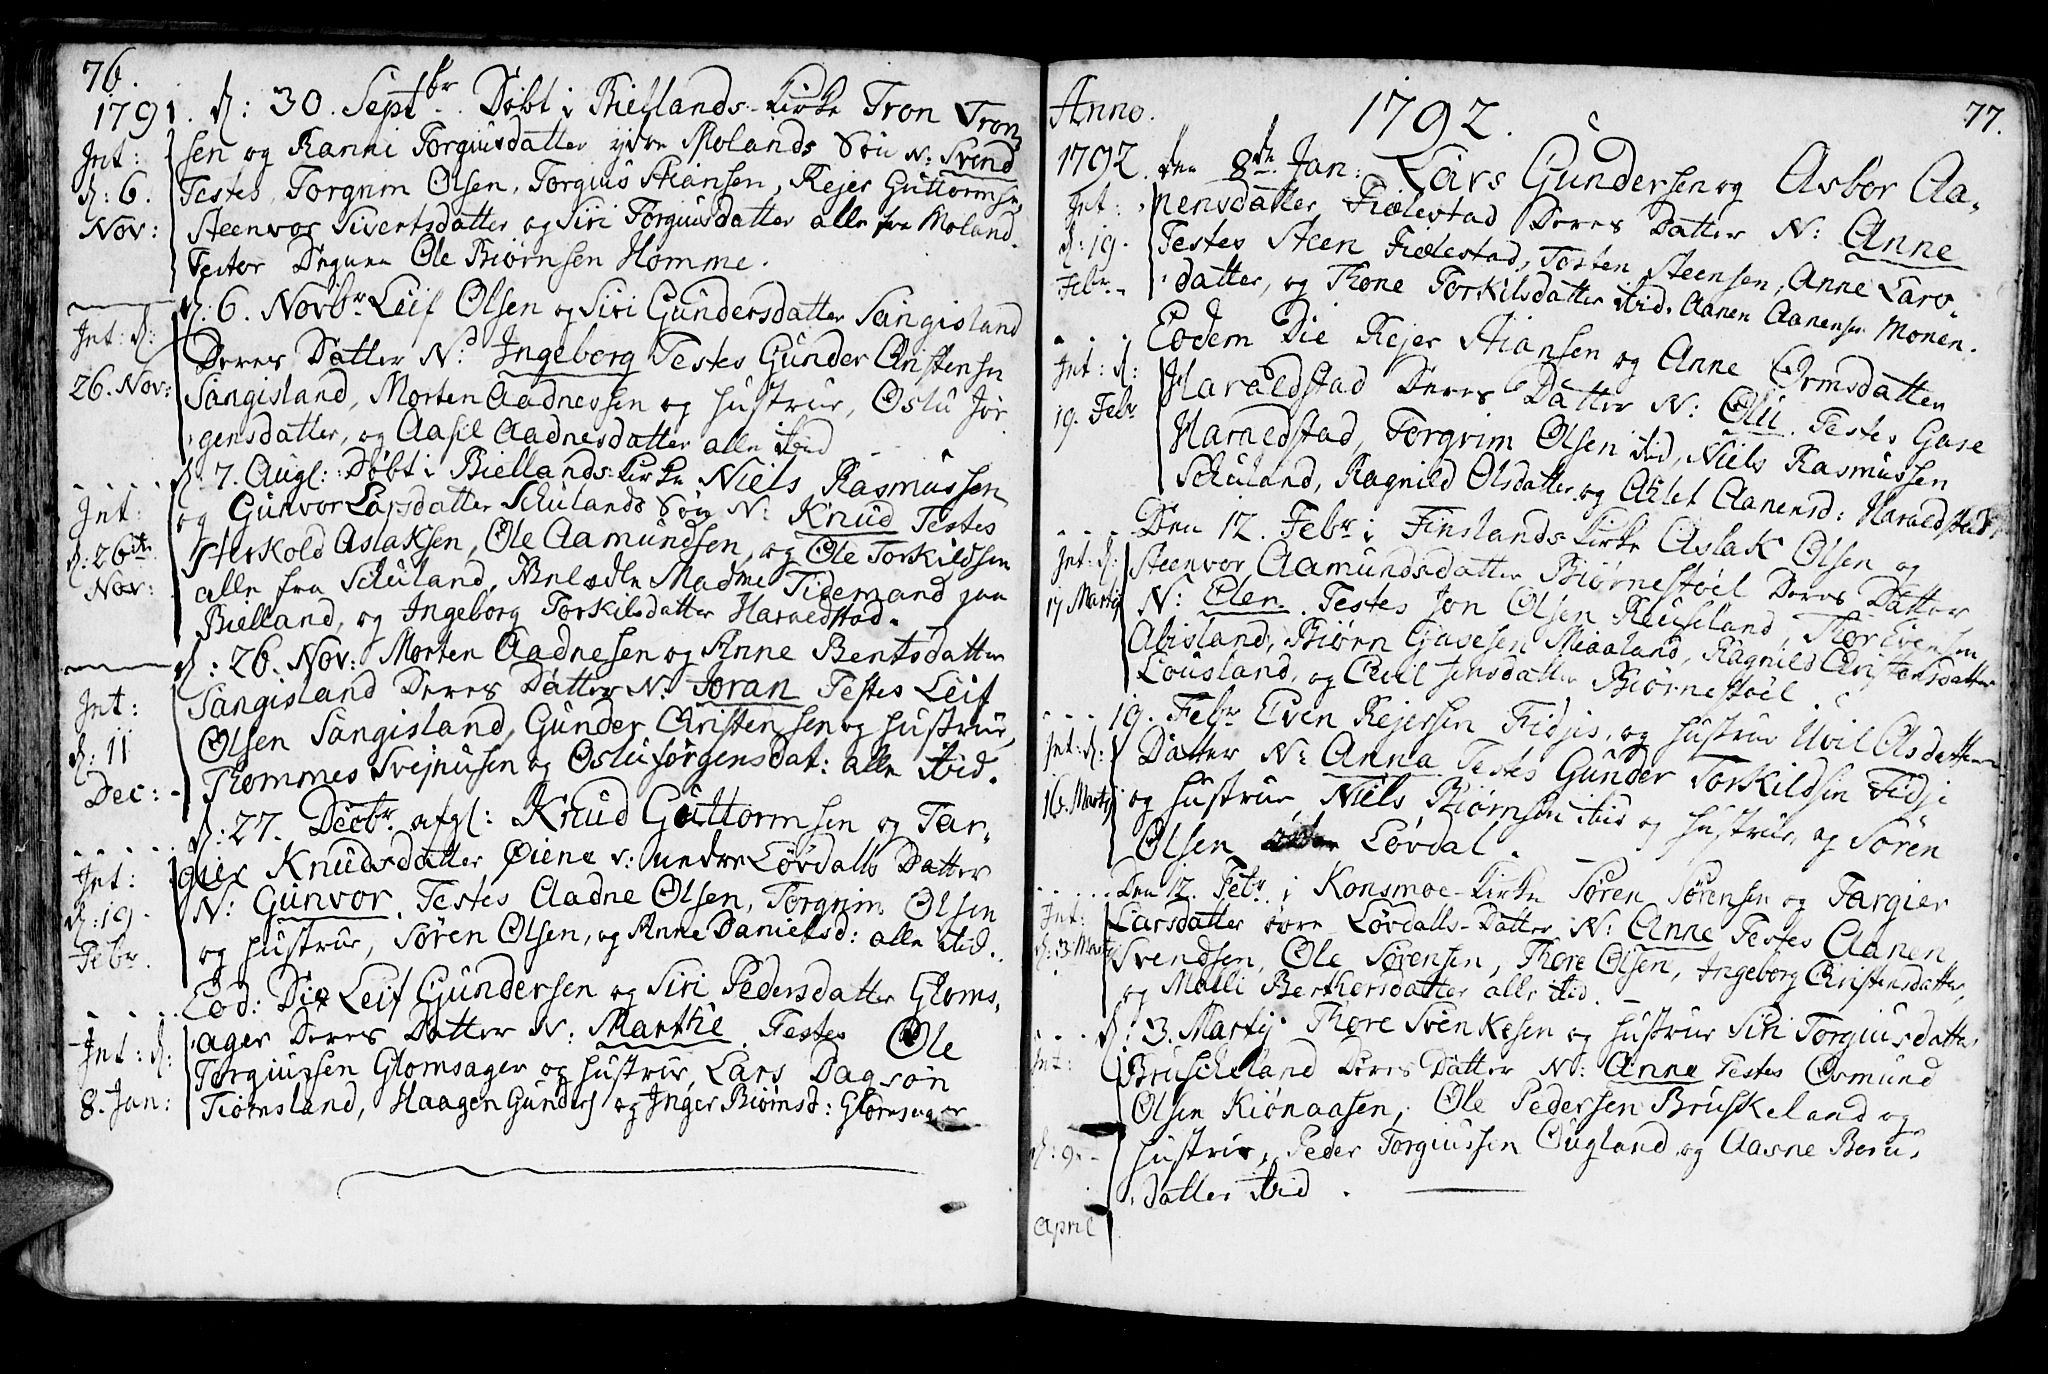 76.
1791. d: 30. Septbr. Døbt i Biellands-Kirke Tron Tron
Int: sen og Ranni Torgiusdatter ydre Molands Søn N: Svend
d: 6. Testes, Torgrim Olsen, Torgius Stiansen, Rejer Guttormsen,
Nov: Steenvor Sivertsdatter og Siri Torgiusdatter alle fra Moland.
Testor Degnen Ole Biørnsen Homme.
d. 6. Novbr Leif Olsen og Siri Gundersdatter Sangisland
Int: d: Deres Datter N: Ingeborg Testes Gunder Christensen
26. Nov: Sangisland, Morten Aadnessen og Hustrue, Oslu Jør
gensdatter, og Aasil Aadnesdatter alle ibid
d. 7. Augl: Døbt i Biellands Kirke Niels Rasmussen
Int: og Gunvor Larsdatter Schulands Søn N: Knud Testes
d: 26de Herkold Aslaksen, Ole Aamundsen, og Ole Torkildsen
Nov: alle fra Schuland, Madme Tidemand paa
Bielland, og Ingeborg Torkilsdatter Haraedstad.
d: 26. Nov: Morten Aadnesen og Anne Bentsdatter
Int: Sangisland Deres Datter N. Joran Testes Leif
Olsen Sangisland, Gunder Christensen og Hustrue,
d: 11 Thommes Svejnusen og Oslu Jørgensdat: alle ibid.
Dec:
d: 27. Decbr. afgl: Knud Guttormsen og Tar-
Int: gier Knudsdatter Øiene v: undre Løvdalls Datter
d: 19. N: Gunvor. Testes Aadne Olsen, Torgrim Olsen
Febr. og Hustrue, Søren Olsen, og Anne Danielsd: alle ibid.
Eod: Die Leif Gundersen og Siri Pedersdatter Gloms-
Int: d: ager Deres Datter N: Marthe. Testes Ole
Torgiussen Glomsager og Hustrue, Lars Dagsøn
8. Jan: Tiømsland, Haagen Gunders og Inger Biørnsd: Glomsager
Anno. 1792. 77.
1792. den 8de Jan: Lars Gundersen og Asbor Aa-
Int: nensdatter Fielestad Deres Datter N: Anne
d: 19. Testes Steen Fielestad, Tosten Steensen, Anne Larv-
Febr. datter, og Thone Torkilsdatter ibid. Aanen Aanensen Monen.
Eodem Die Rejer Stiansen og Anne Ormsdatter
Int: d: Haraldstad Deres Datter N: Oli. Testes Gase
19. Febr Haraedstad, Torgrim Olsen ibid, Niels Rasmussen
Schuland, Ragnild Olsdatter og Atlet Aanensd: Haraldstad
Den 12. Febr i Finslands Kirke Aslak Olsen og
Int: d: Steenvor Aamundsdatter Biørnestøel Deres Datter
17 Martij N: Elen. Testes Jon Olsen Reuseland, Thor Evensen
Abisland, Biørn Gasesen Miaaland, Ragnild Christensdatter
Lousland, og Jensdatter Biørnestøel.
19. Febr Even Rejersen Fidjis, og Hustrue Uvil Asdatter
Int: d: Datter N: Anna Testes Gunder Torkildsen Fidje
16. Martij og Hustrue, Niels Biørnsøn ibid og Hustrue, og Søren
Olsen Løvdal.
Den 12. Febr. i Konsmoe-Kirke Søren Sørensen og Targier
Int: Larsdatter øvre Løvdalls-Datter N: Anne Testes Aanen
d: 3 Martij Svendsen, Ole Sørensen, Thore Olsen, Ingeborg Christensdatter,
og Malli Berthersdatter alle ibid.
d: 3. Martij Thore Svenkesen og Hustrue Siri Torgiusdatter
Int: Bruskeland Deres Datter N: Anne Testes Osmund
Olsen Kiønaasen, Ole Pedersen Bruskeland og
d: 9. Hustrue, Peder Torgiussen Ougland og Aasne Beru-
datter ibid.
April